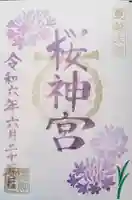 桜神宮
令和六年六月二十